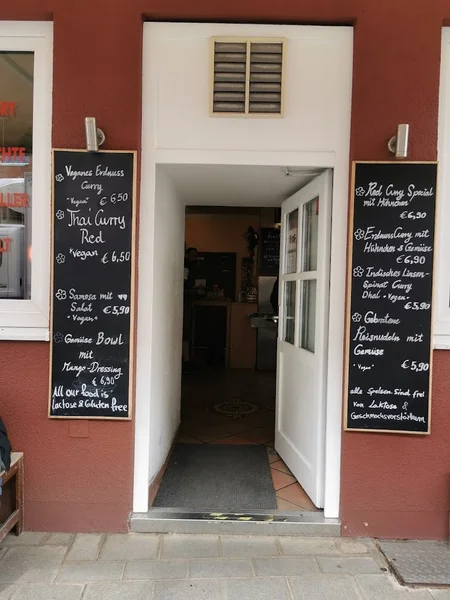 Veganes Erdnuss
Curry
"Vegan" € 6,50
Thai Curry
Red
"Vegan € 6,50
Samosa mit
Salat € 5,90
"Vegan"
Gemüse Bowl
mit
Mango-Dressing
€ 6,90
All our food is
Lactose & Gluten free
Red Curry Special
mit Hühnchen
€ 6,90
Erdnuss Curry mit
Hühnchen & Gemüse
€ 6,90
Indisches Linsen-
Spinat Curry
Dhal - Vegan"
€ 5,90
Gebratene
Reisnudeln mit
Gemüse
"Vegan" € 5,90
alle Speisen Sind frei
von Laktose &
Geschmacksverstärkern